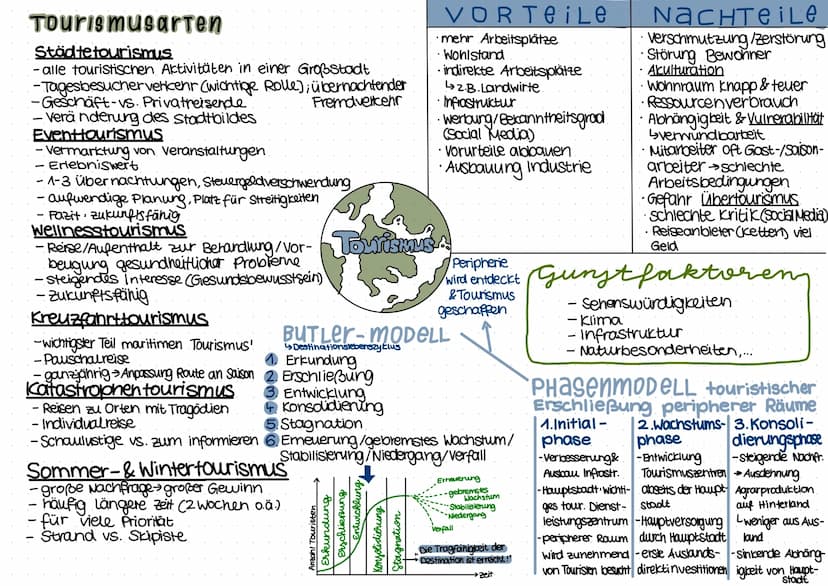 TOURISMUSARTEN
Städtetourismus
- alle touristischen Aktivitäten in einer Großstadt
- Tagesbesucherverkehr (wichtige Rolle); übernachtender
Fremdverkehr
- Geschäft- vs. Privatreisende
- Veränderung des Stadtbildes
Eventtourismus
- Vermarktung von Veranstaltungen
- Erlebniswert
- 1-3 Übernachtungen, Steuergeldverschwendung
- aufwendige Planung, Platz für Streitigkeiten
- Fazit: zukunftsfähig
Wellnesstourismus
- Reise/Aufenthalt zur Behandlung/Vor-
beugung gesundheitlicher Probleme
- steigendes Interesse (Gesundsbewusstsein)
- zukunftsfähig
Kreuzfahrttourismus
- wichtigster Teil maritimen Tourismus'
- Pauschalreise
- ganzjährig → Anpassung Route an Saison
Katastrophentourismus
- Reisen zu Orten mit Tragödien
- Individualreise
- Schaulustige vs. zum informieren
Sommer- & Wintertourismus
- große Nachfrage → großer Gewinn
- häufig längere Zeit (2 Wochen o.ä.)
- für viele Priorität
- Strand vs. Skipiste
Tourismus
VORTEILE
· mehr Arbeitsplätze
· Wohlstand
· indirekte Arbeitsplätze
↳ z.B. Landwirte
· Infrastruktur
· Werbung/Bekanntheitsgrad
(Social Media)
· Vorurteile abbauen
· Ausbauung Industrie
NACHTEILE
· Verschmutzung/Zerstörung
· Störung Bewohner
· Akulturation
· Wohnraum knapp & teuer
· Ressourcenverbrauch
· Abhängigkeit & Vulnerabilität
↳ Verwundbarkeit
· Mitarbeiter oft Gast-/Saison-
arbeiter → schlechte
Arbeitsbedingungen
· Gefahr Übertourismus
· schlechte Kritik (Social Media)
· Reiseanbieter (Ketten) viel
Geld
Peripherie
wird entdeckt
& Tourismus
geschaffen
Gunstfaktoren
- Sehenswürdigkeiten
- Klima
- Infrastruktur
- Naturbesonderheiten,...
BUTLER-MODELL
↳ Destinationslebenszyklus
1. Erkundung
2. Erschließung
3 Entwicklung
4. Konsolidierung
5 Stagnation
6. Erneuerung/gebremstes Wachstum/
Stabilisierung/Niedergang/Verfall
Anzahl Touristen
Erkundung
Erschließung
Entwicklung
Konsolidierung
Stagnation
Erneuerung
gebremstes
Wachstum
Stabilisierung
Niedergang
Verfall
Die Tragfähigkeit der
Destination ist erreicht!
Zeit
PHASENMODELL touristischer
Erschließung peripherer Räume
1. Initial-
phase
- Verbesserung &
Ausbau Infrastr.
- Hauptstadt wichti-
ges tour. Dienst-
leistungszentrum
- peripherer Raum
wird zunehmend
von Touristen besucht
2. Wachstums-
phase
- Entwicklung
Tourismuszentren
abseits der Haupt-
stadt
- Hauptversorgung
durch Hauptstadt
- erste Auslands-
direktinvestitionen
3. Konsoli-
dierungsphase
- steigende Nachfr.
→ Ausdehnung
Agrarproduktion
auf Hinterland
↳ weniger aus Aus-
land
- sinkende Abhäng-
igkeit von Haupt-
stadt